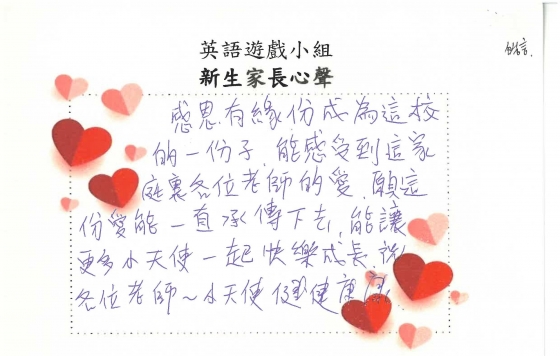 英語遊戲小組
新生家長心聲
感恩有緣份成為這校
的一份子,能感受到這家
庭裏各位老師的愛,願這
份愛能一直承傳下去,能讓
更多小天使一起快樂成長,祝
各位老師~小天使健康